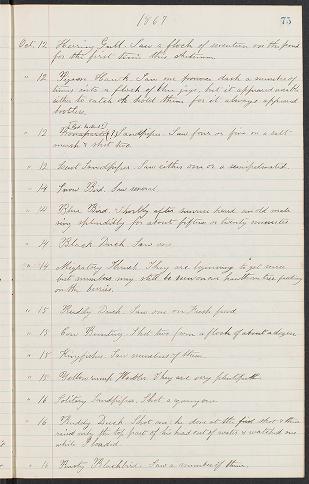 1867
75
Oct. 12 Herring Gull. Saw a flock of seventeen on the pond
for the first time this Autumn.
" 12 Pigeon Hawk. Saw one dash a number of
times into a flock of blue jays, but it appeared
either to catch or hold them for it always appeared
" 12 Sandpiper. Saw four or five on a salt
marsh & shot two.
" 12 Least Sandpiper. Saw either one or a semipalmated.
" 14 Snow Bird. Saw several.
" 14 Blue Bird. Shortly after sunrise heard an old male
sing splendidly for about fifteen or twenty minutes
" 14 Black Duck. Saw one
" 14 Migratory Thrush. They are beginning to get scarce
but numbers may still be seen on hawthorn tree feeding
on the berries.
" 15 Ruddy Duck. Saw one on Fresh pond
" 15 Cow Bunting. Shot two from a flock of about a dozen
" 15 Kingfisher. Saw numbers of them.
" 15 Yellow rump Warbler. They are very plentiful.
" 16 Solitary Sandpiper. Shot a young one
" 16 Ruddy Duck. Shot one; he dove at the first shot & then
raised only the top part of his head out of water & watched me
while I loaded
" 16 Rusty Blackbird. Saw a number of them.